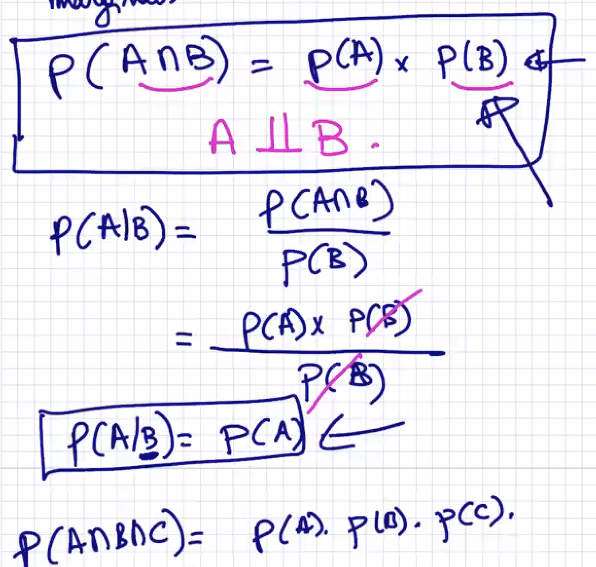 P(A∩B) = P(A) × P(B)
A ⫫ B.
P(A|B) = P(A∩B) / P(B)
= P(A) × P(B) / P(B)
P(A|B) = P(A)
P(A∩B∩C) = P(A). P(B). P(C).